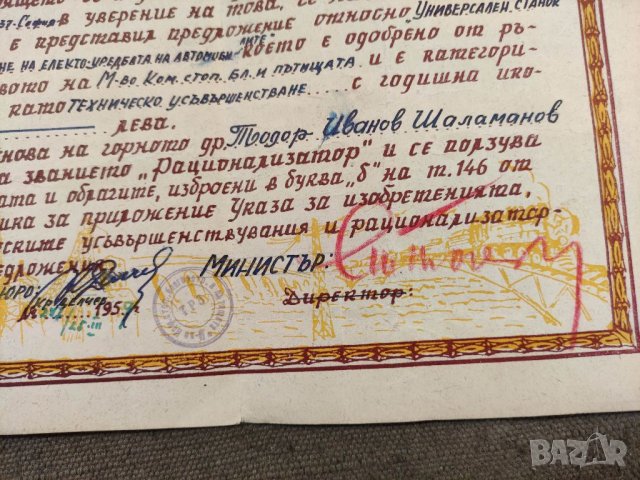 37-София
в уверение на това, се
е представил предложение относно „Универсален станок
не на електо-уредбата на автомоби"лите" което е одобрено от ръ-
вото на М-во Ком. стоп. Бл. и пътищата и е категори-
като Техническо усъвършенстване с годишна ико-
лева.
нова на горното др. Тодор Иванов Шаламанов
а званието „Рационализатор" и се ползува
ата и облагите, изброени в буква „б" на т. 146 от
ика за приложение Указа за изобретенията,
ските усъвършенствувания и рационализатор-
едложения
БЮРО:
МИНИСТЪР:
Директор:
195
BAZAR